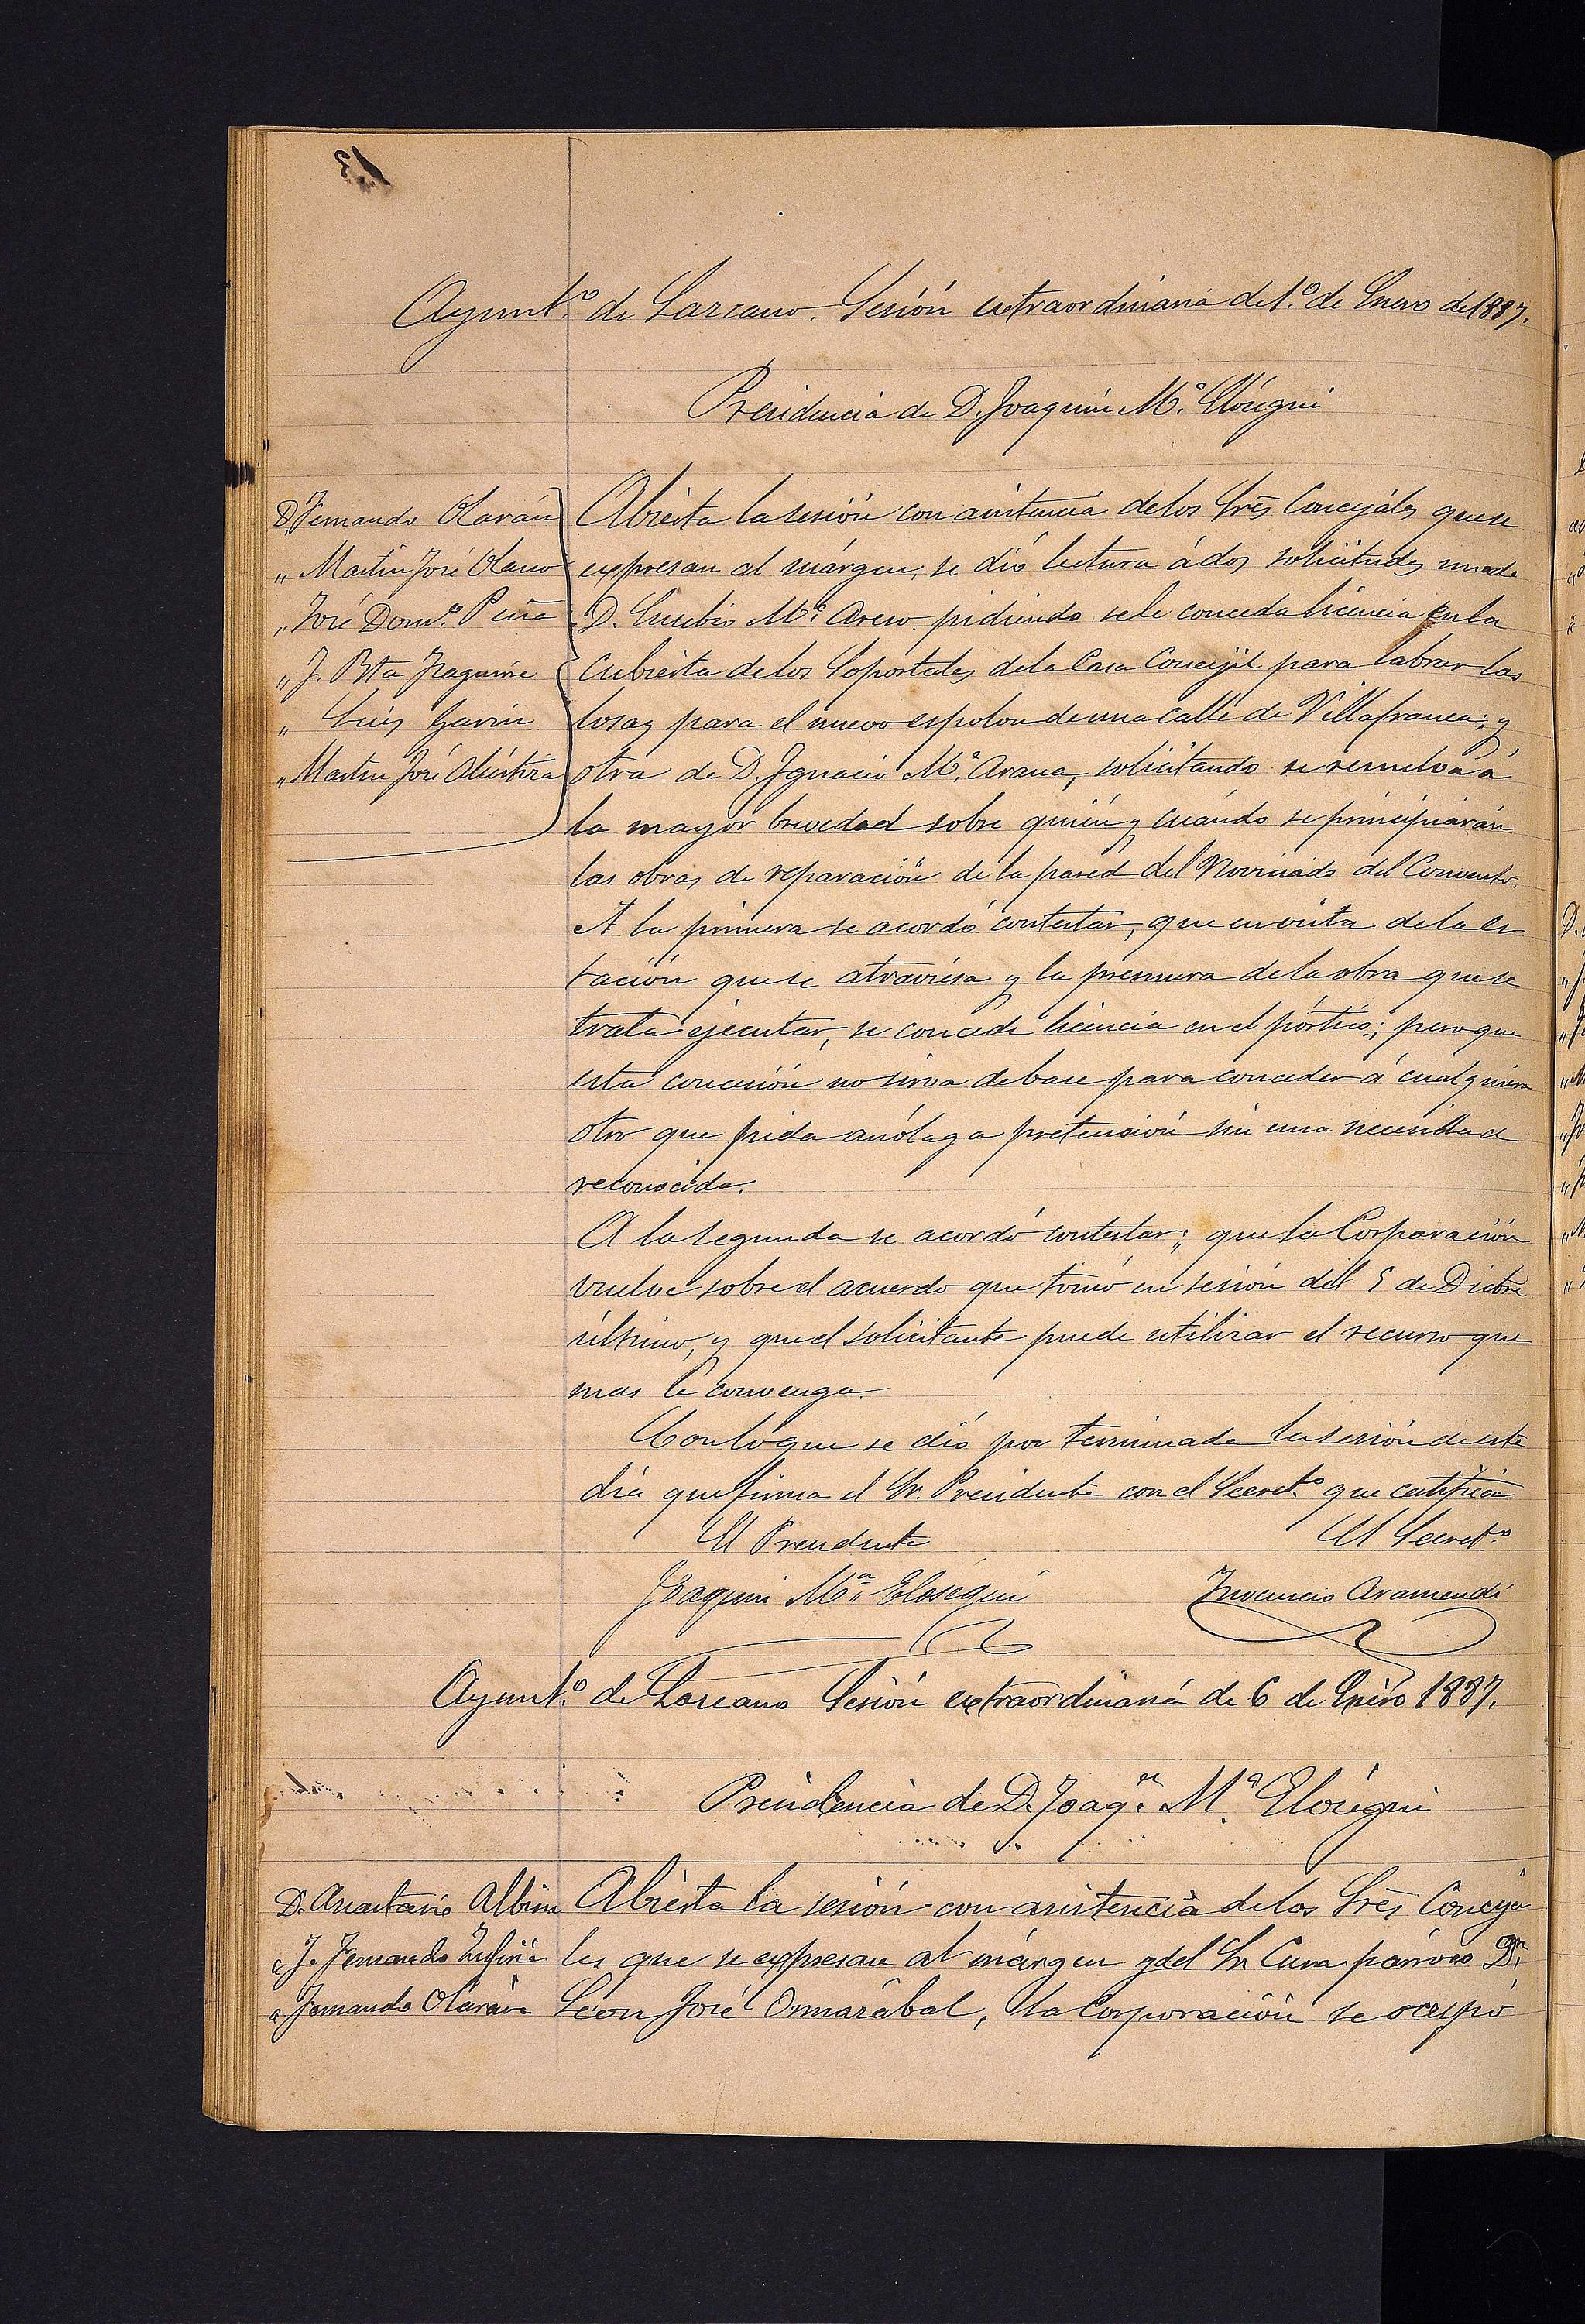 Ayunt.º de Lazcano. Sesión extraordinaria del 1.º de Enero de 1887.
Presidencia de D. Joaquin M.ª Elósegui
D. Fernando Olarán
„ Martin José Olano
„ José Dom.º Peña
„ J. Bta Iraguirre
„ Luis Garin
„ Martin José Aluistiza
Abierta la sesión con asistencia de los Sres Concejáles que se
expresan al márgen, se dió lectura á dos solicitudes una de
D. Eusebio M.ª Areso pidiendo se le conceda licencia en la
cubierta de los Soportales de la Casa Concejil para labrar las
losas para el nuevo espolon de una calle de Villafranca; y
otra de D. Ignacio M.ª Arana, solicitando se resuelva á
la mayor brevedad sobre quién y cuándo se principiarán
las obras de reparación de la pared del Noviciado del Convento.
A la primera se acordó contestar, que en vista de la es
tación que se atraviésa y la premura de la obra que se
trata ejecutar, se concede licencia en el pórtico; pero que
esta concesión no sirva de base para conceder á cualquiera
otro que pida análoga pretensión sin una necesidad
reconocida.
A la segunda se acordó contestar; que la Corporación
vuelve sobre el acuerdo que tomó en sesión del 5 de Dicbre
último, y que el solicitante puede utilizar el recurso que
mas le convenga.
Con lo que se dió por terminada la sesión de este
dia que firma el Sr. Presidente con el Secret.º que certifica
El Presidente El Secret.º
Joaquin M.ª Elosegui Inocencio Aramendi
Ayunt.º de Lazcano Sesión extraordinaria de 6 de Enero 1887.
Presidencia de D. Joaq.n M.ª Elósegui
D. Anastasio Albisu
„ J. Fernando Zufiria
„ Fernando Olarán
Abierta la sesión con asistencia de los Sres Conceja
les que se expresan al márgen y del Sr. Cura párroco Dn.
León José Ormazabal, la Corporación se ocupó